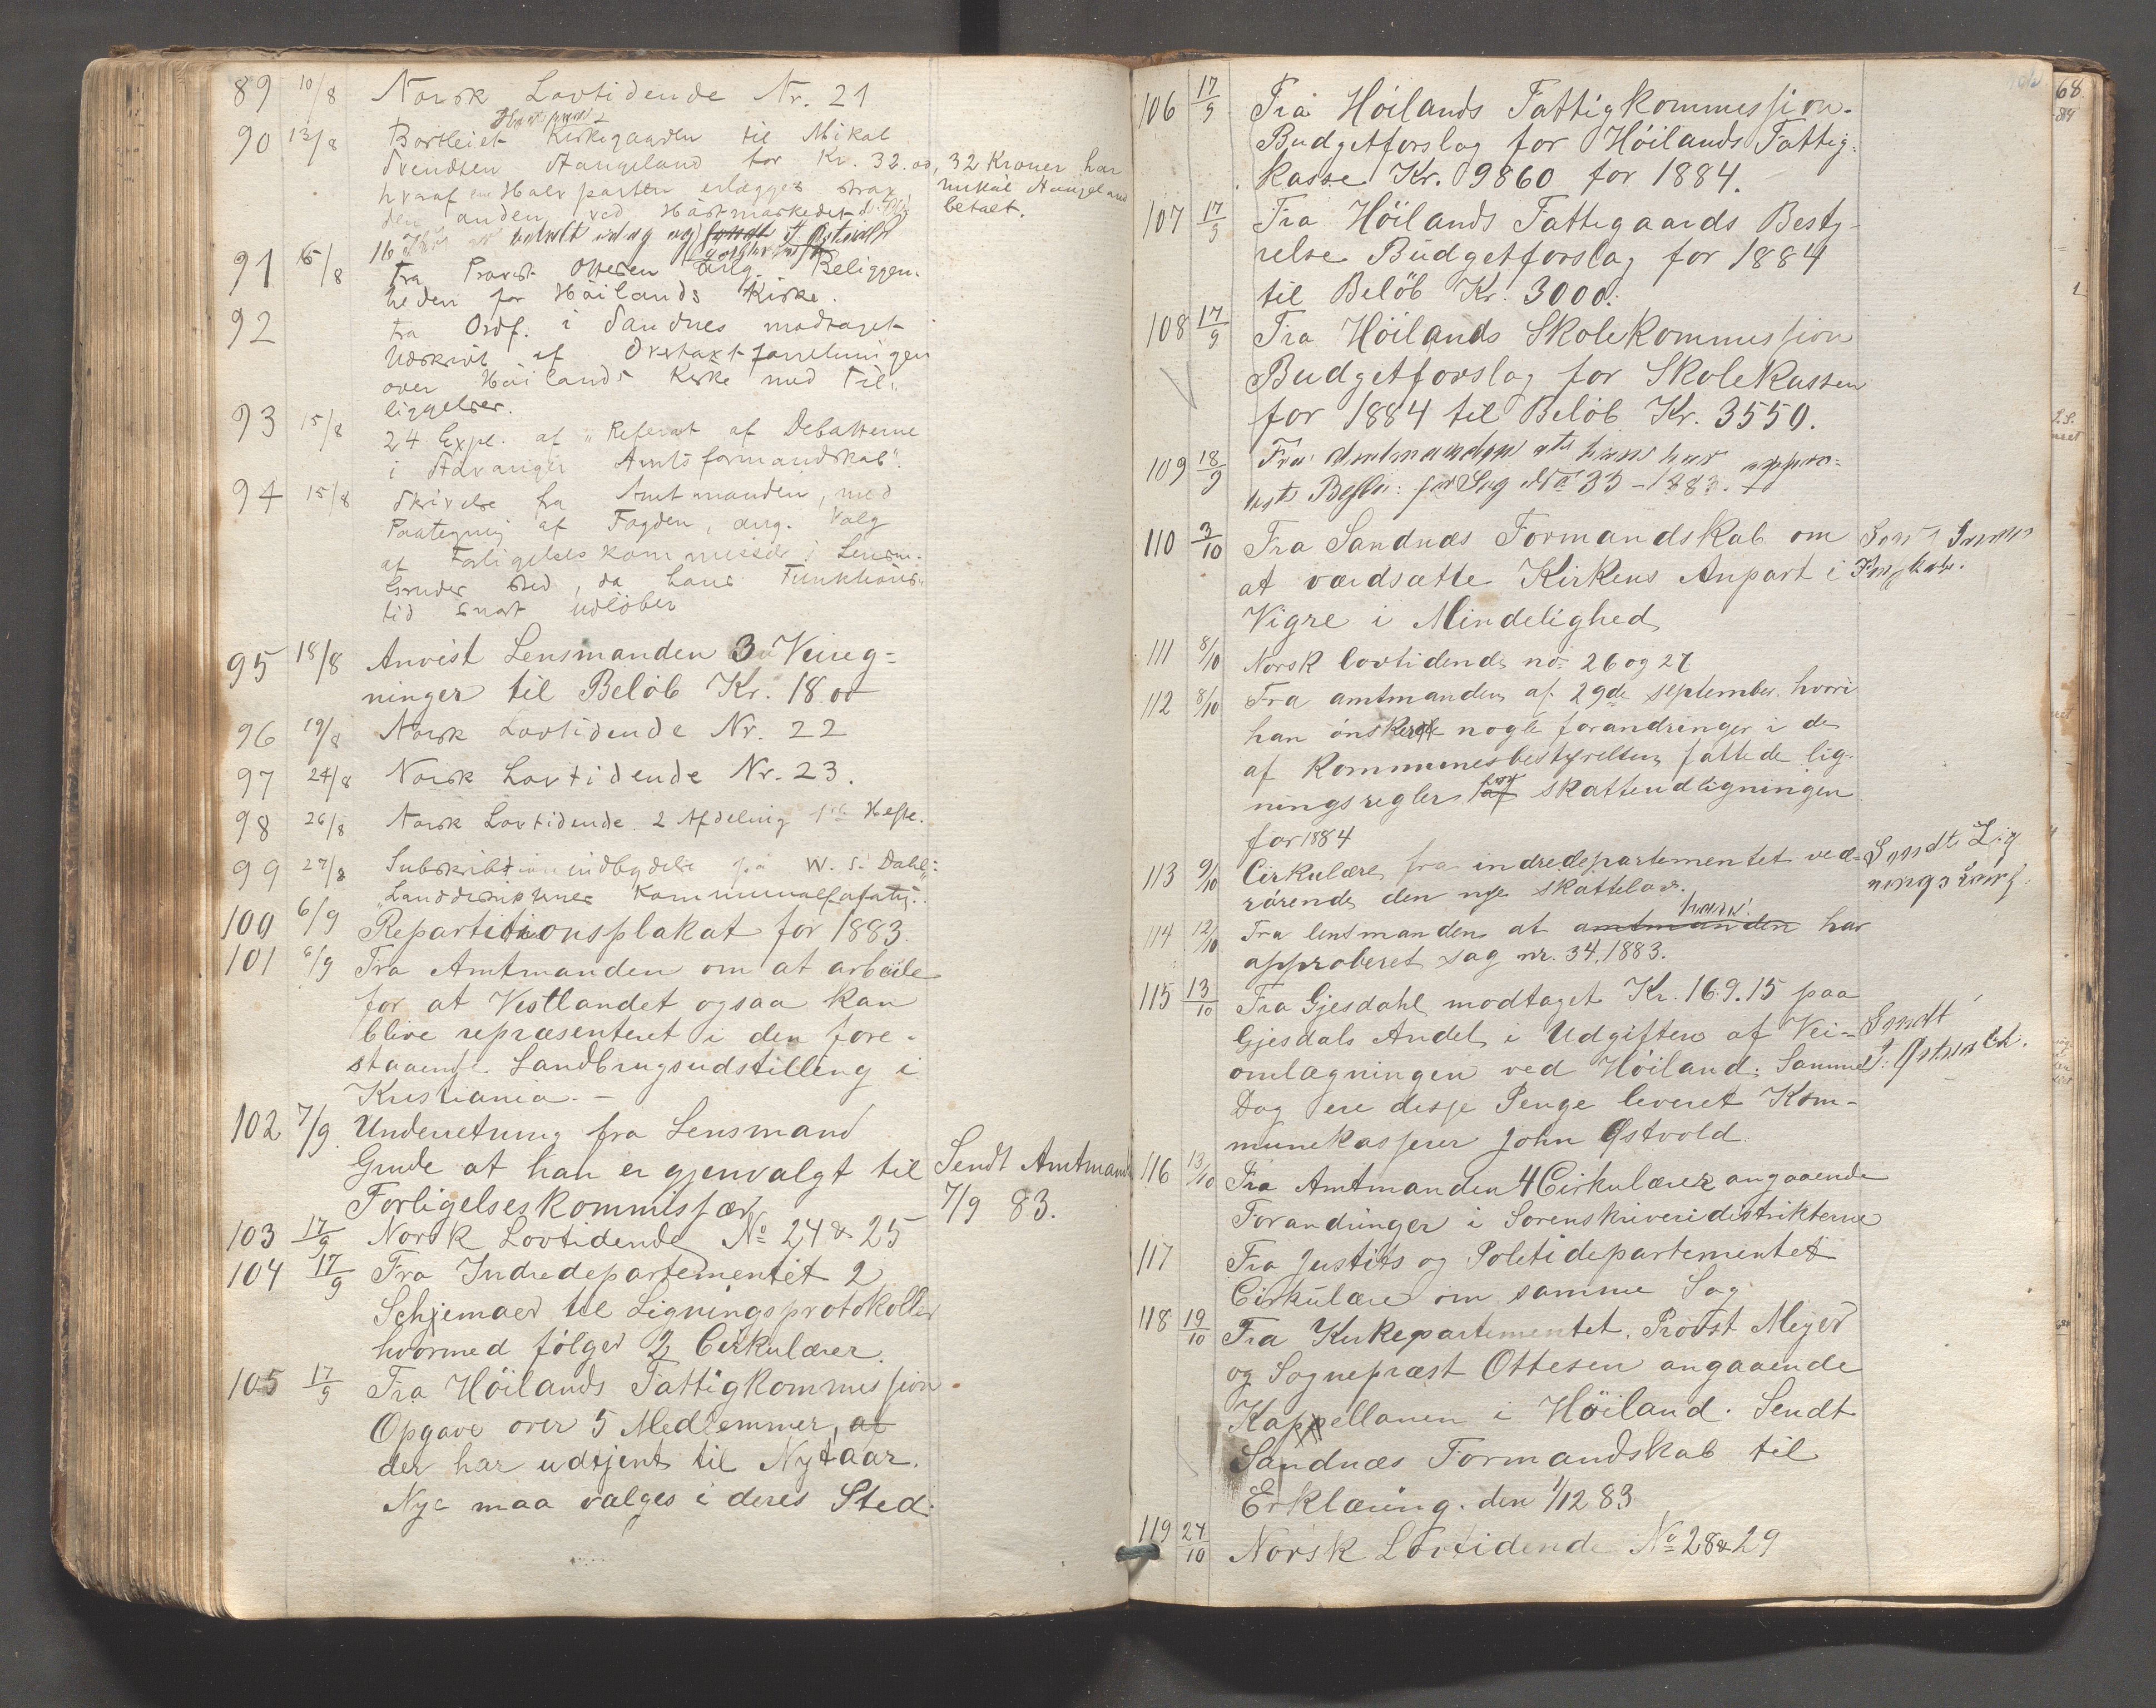 89 10/8 Norsk Lovtidende Nr. 21
90 13/8 Bortleiet Kirkegaarden til Mikal
Svendsen Haugeland for Kr. 32.00,
hvoraf en Halvparten erlægges strax
den anden ved Høstmarkedet
32 Kroner har
Mikal Haugeland
betalt.
16 betalt idag og
91 15/8 Fra Provst Ottesen ang. Beliggen-
heden for Höilands Kirke.
92 Fra Ordf. i Sandnes modtaget
Udskrivt af Overtaxtforretningen
over Höilands Kirke med Til-
liggelser.
93 15/8 24 Expl. af "Referat af Debatterne
i Stavanger Amtsformandskab".
94 15/8 Skrivelse fra Amtmanden, med
Paategning af Fogden, ang. Valg
af Forligelseskommissær i Lensm.
Gruder Sted, da hans Funktions-
tid snart udlöber
95 18/8 Anvist Lensmanden 3 Reireg-
ninger til Belöb Kr. 18.00
96 19/8 Norsk Lovtidende Nr. 22
97 24/8 Norsk Lovtidende Nr. 23.
98 26/8 Norsk Lovtidende 2 Afdeling 1ste Hefte.
99 27/8 Subskribtionsindbydelse på W. S. Dahls:
"Landdistrikternes Kommunalforfatn."
100 6/9 Repartitionsplakat for 1883.
101 6/9 Fra Amtmanden om at arbeide
for at Vestlandet ogsaa kan
blive repræsenteret i den fore-
staaende Landbrugsudstilling i
Kristiania. -
102 7/9 Underretning fra Lensmand
Grude at han er gjenvalgt til
Forligelseskommissær
Sendt Amtmand
7/9 83.
103 17/9 Norsk Lovtidende No 24 & 25
104 17/9 Fra Indredepartementet 2
Schjemaer til Ligningsprotokoller
hvormed følger 2 Cirkulærer.
105 17/9 Fra Höilands Fattigkommission
Opgave over 5 Medlemmer, af
der har udtjent til Nytaar.
Nye maa vælges i deres Sted.
68.
106 17/9 Fra Höilands Fattigkommission.
Budgetforslag for Höilands Fattig-
kasse Kr. 9860 for 1884.
107 17/9 Fra Höilands Fattegaards Besty-
relse Budgetforslag for 1884
til Belöb Kr. 3000.
108 17/9 Fra Höilands Skolekommission
Budgetforslag for Skolekassen
for 1884 til Belöb Kr. 3550.
109 18/9 Fra Amtmanden at han har appro-
bert Beslu: for Sag No 33 - 1883.
110 3/10 Fra Sandnæs Formandskab om
at værdsætte Kirkens Anpart i
Vigre i Mindelighed
111 8/10 Norsk lovtidende no 26 og 27
112 8/10 Fra amtmanden af 29de september hvori
han ønsker nogle forandringer i de
af Kommunesbestyrelsen fattede lig-
ningsregler for af skatteudligningen
for 1884
113 9/10 Cirkulære fra indredepartementet ved-
rörende den nye skattelov.
Sendt Lig
114 12/10 Fra lensmanden at amtmanden har
approberet sag nr. 34, 1883.
115 13/10 Fra Gjesdahl modtaget Kr. 169.15 paa
Gjesdals Andel i Udgiften af Vei-
omlægningen ved Höiland. Samme
Dag ere disse Penge leveret Kom-
munekasserer John Østvold.
Sendt
J: Østvold.
116 13/10 Fra Amtmanden 4 Cirkulærer angaaende
Forandringer i Sorenskriveridistrikterne
117 Fra Justits og Politidepartementet
Cirkulære om samme Sag
118 19/10 Fra Kirkepartementet. Provst Meyer
og Sognepræst Ottesen angaaende
Kappellanen i Höiland. Sendt
Sandnæs Formandskab til
Erklæring. den 1/12 83
119 24/10 Norsk Lovtidende No 28 & 29